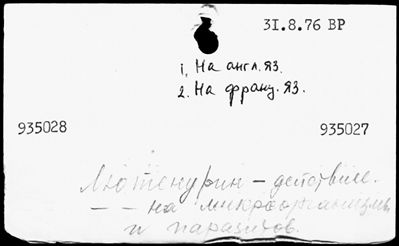 31.8.76 ВР
1. На англ. яз.
2. На франц. яз.
935028 935027
Лютенурин – действие.
— — на микроорганизмы
и паразитов.